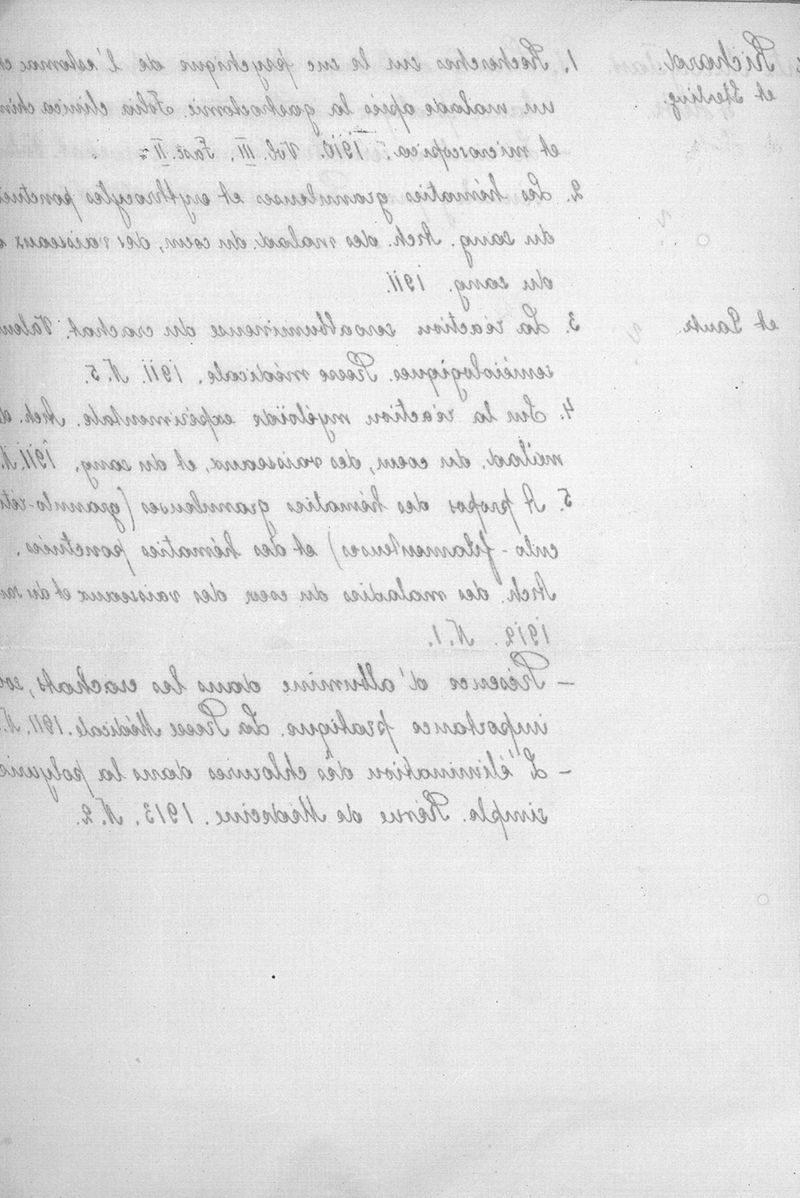 Richard. 1. Recherches sur le suc psychique de l'estomac ch
et Sterling. un malade après la gastrotomie. Folia clinica chim
et microscopica. 1910. Vol. III. Fasc. II=
2. Les hématies granuleuses et erythrocytes ponctué
du sang. Arch. des malad. du coeur, des vaisseaux
du sang. 1911.
et Lautr. 3. La réaction seroalbumineuse du crachat. Valeur
seméiologiques. Presse médicale. 1911. N. 5.
4. Sur la réaction myéloïde expérimentale. Arch. d
malad. du coeur, des vaisseaux, et du sang. 1911. N.
5. A propos des hématies granuleuses (granulo-réti
culo-filamenteuses) et des hématies ponctuées.
Arch. des maladies du coeur des vaisseaux et du sa
1912. N. 1.
— Présence d'albumine dans les crachats, so
importance pratique. La Presse Médicale. 1911. N.
— L'élimination des chlorures dans la polyurie
simple. Révue de Médecine. 1913. N. 2.